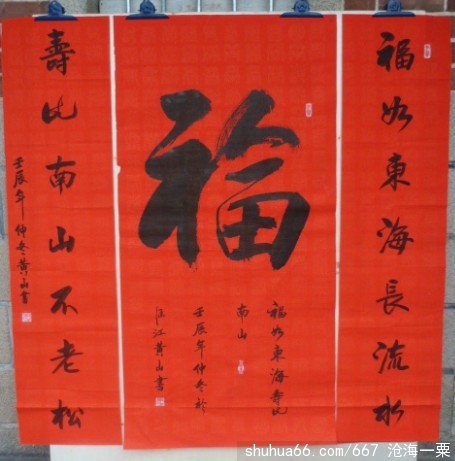 福如東海長流水
福
福如東海壽比
南山
壬辰年仲冬於
黄山書
壽比南山不老松
壬辰年仲冬黄山書
shuhua66.com/667 沧海一粟